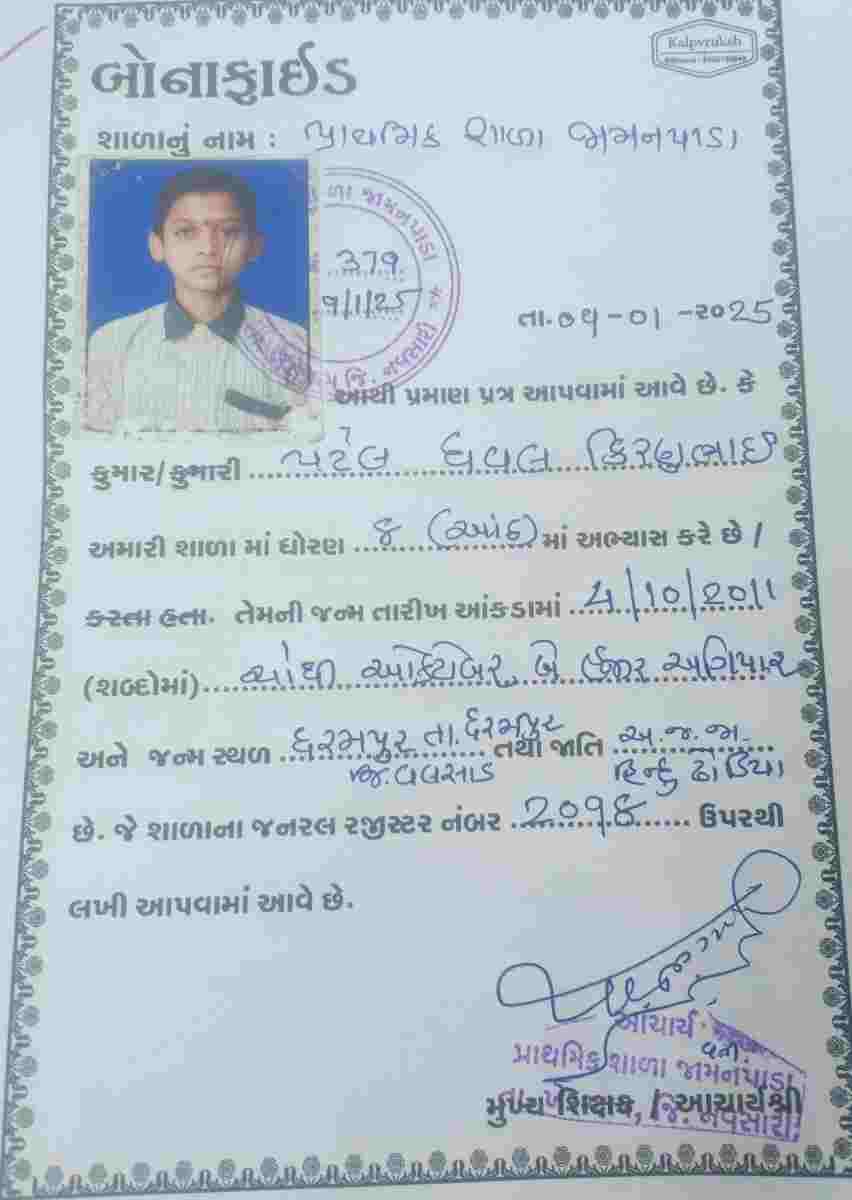 Kalpvruksh
બોનાફાઈડ
શાળાનું નામ : પ્રાથમિક શાળા જામનપાડા
શાળા જામનપાડા
જિ. નવસારી
379
9/1/25
તા. ૦૫-૦૧-૨૦25
આથી પ્રમાણ પત્ર આપવામાં આવે છે. કે
કુમાર/કુમારી પટેલ ધવલ કિરણભાઈ
અમારી શાળા માં ધોરણ ૮ (આંઠ) માં અભ્યાસ કરે છે /
કરતા હતા. તેમની જન્મ તારીખ આંકડામાં 4/10/2011
(શબ્દોમાં) ચોથી ઓક્ટોબર, બે હજાર અગિયાર
અને જન્મ સ્થળ ધરમપુર તા. ધરમપુર તથા જાતિ અ.જ.જા.
જિ. વલસાડ હિન્દુ ઢોડિયા
છે. જે શાળાના જનરલ રજીસ્ટર નંબર 2૦૧૪ ઉપરથી
લખી આપવામાં આવે છે.
આચાર્ય
વતી.
પ્રાથમિક શાળા જામનપાડા
જિ. નવસારી
મુખ્ય શિક્ષક, / આચાર્યશ્રી